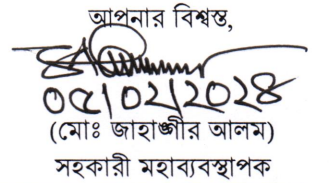 আপনার বিশ্বস্ত,
০৫/০২/২০২৪
(মোঃ জাহাঙ্গীর আলম)
সহকারী মহাব্যবস্থাপক